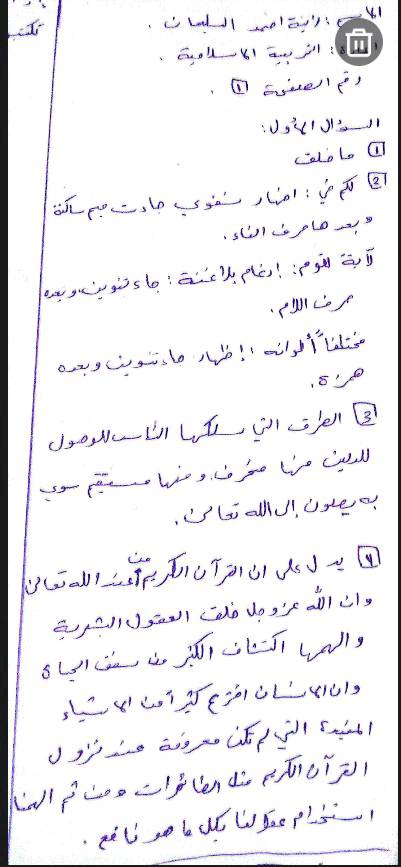 الاسم: راية احمد السليمان.
تكتب
المادة: التربية الاسلامية.
رقم الصفحة 1.
السؤال الأول:
1 ما خلق
2 لكم في: اظهار شفوي جاءت ميم ساكنة
وبعدها حرف الفاء.
لآية لقوم: إدغام بلا غنة: جاء تنوين وبعده
حرف اللام.
مختلفاً ألوانه: إظهار جاء تنوين وبعده
همزة.
3 الطرق التي يسلكها الناس للوصول
للدين منها منحرف ومنها مستقيم سوي
به يصلون إلى الله تعالى.
4 يدل على ان القرآن الكريم من عند الله تعالى
وان الله عز وجل خلق العقول البشرية
والهمها اكتشاف الكثير من سنن الحياة
وان الانسان اخترع كثيراً من الاشياء
المفيدة التي لم تكن معروفة عند نزول
القرآن الكريم مثل الطائرات ومن ثم الهمنا
استخدام عقولنا بكل ما هو نافع.